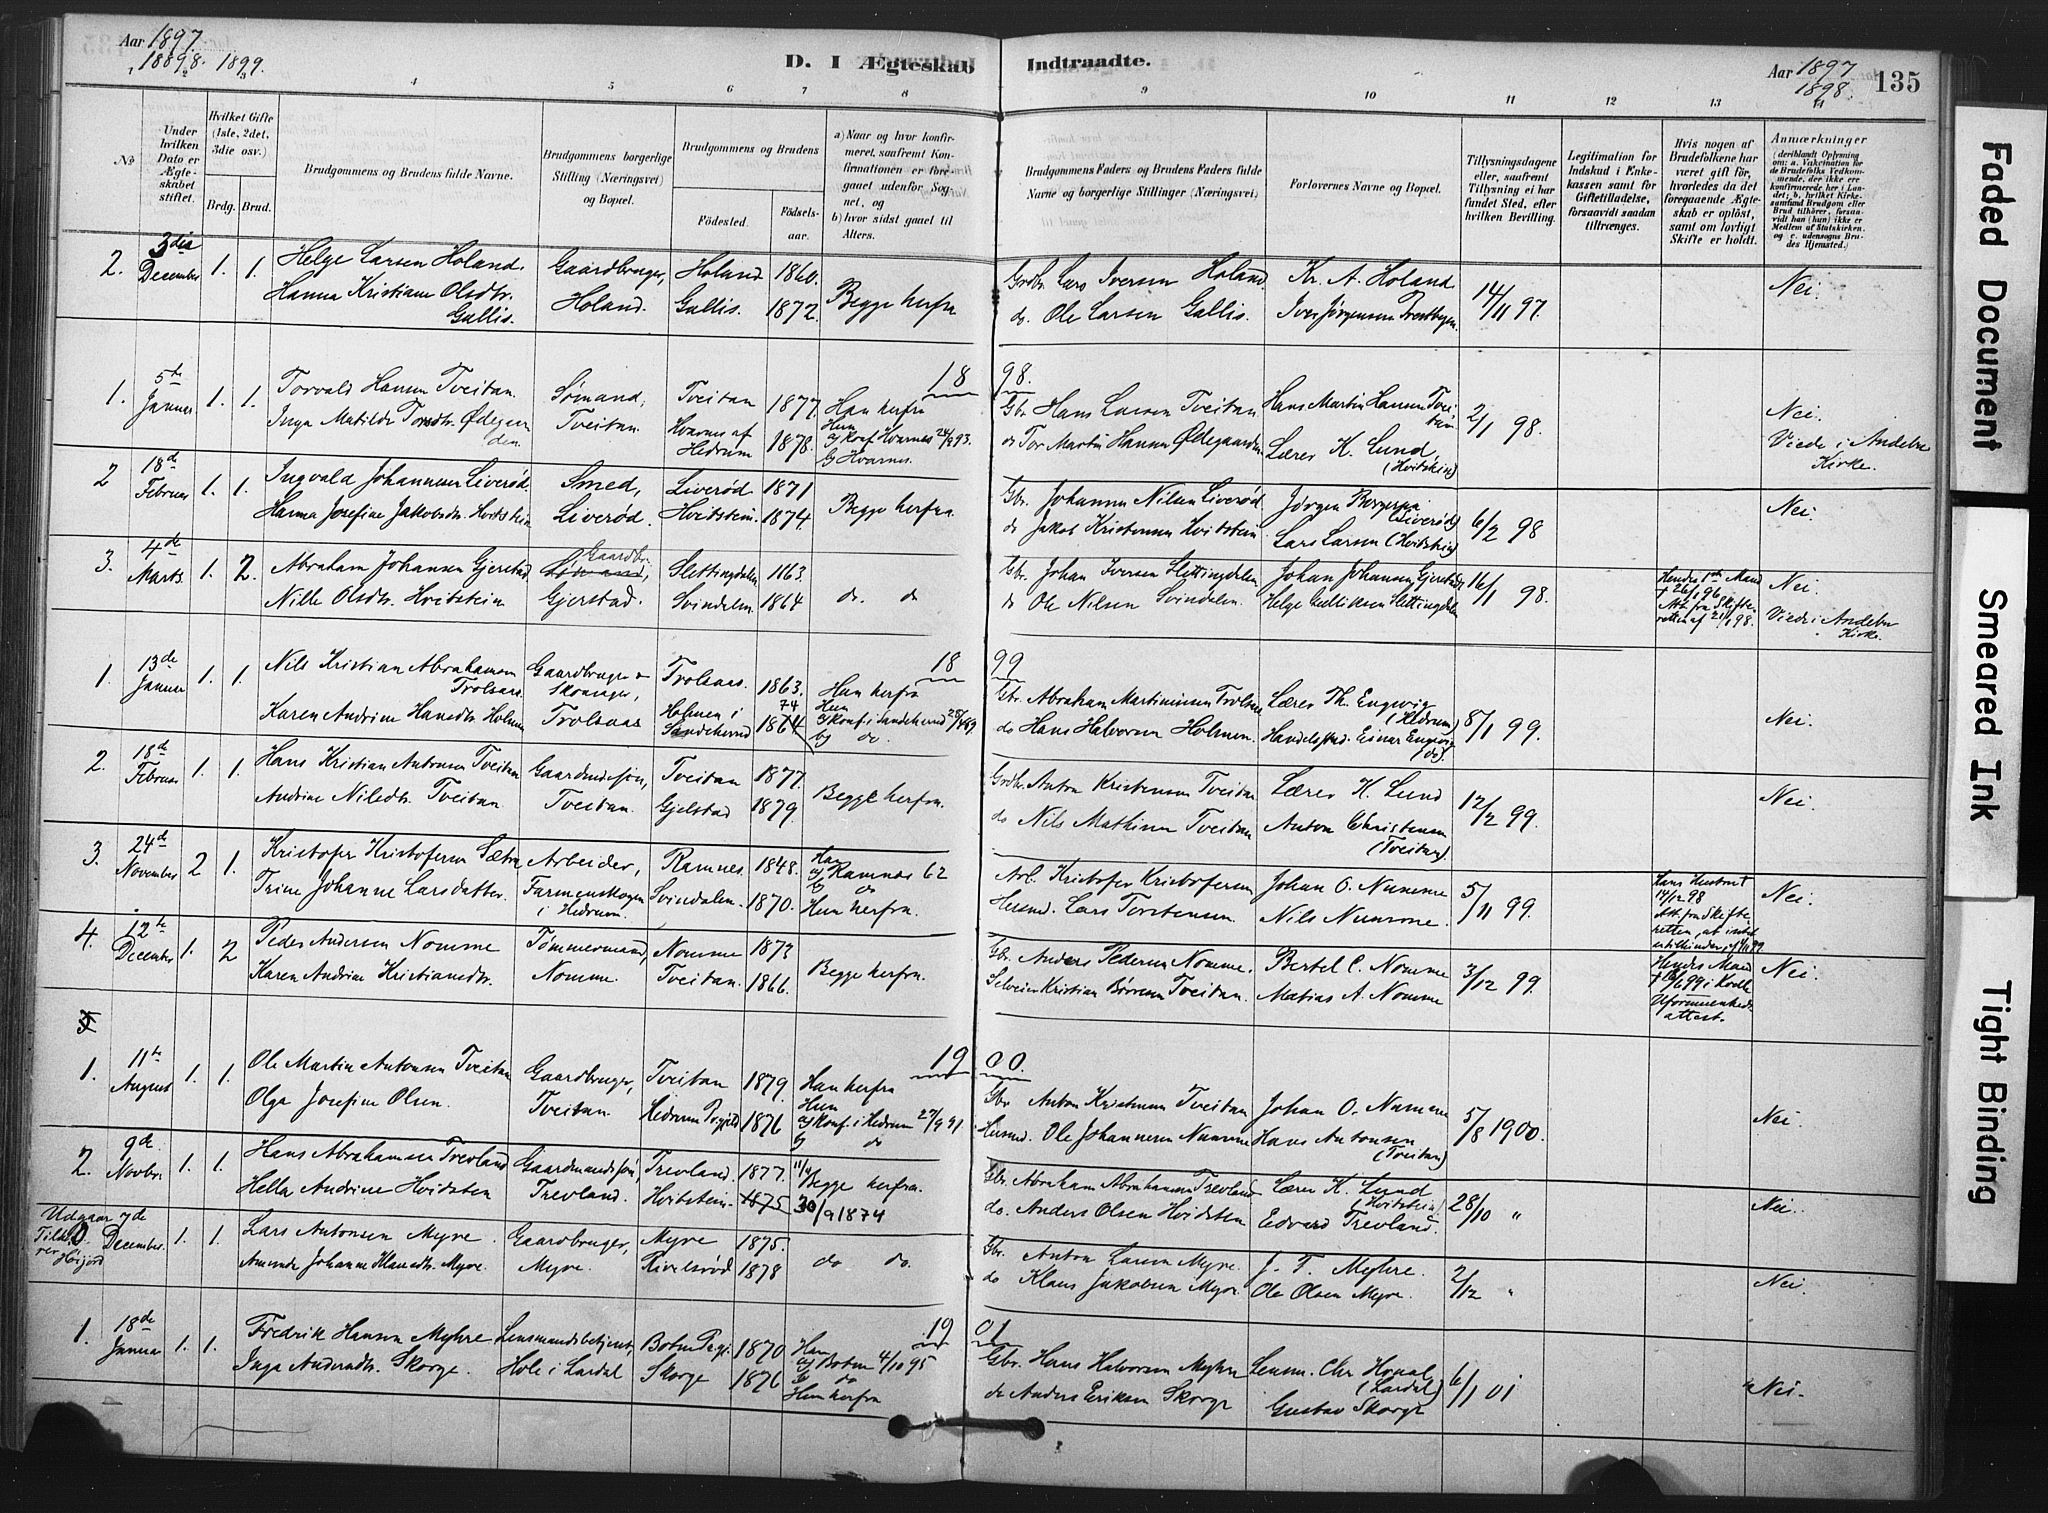 Aar 1897
18898. 1899.
D. I Ægteskab Indtraadte.
Aar 1897
1898.
135
1 2 3 4 5 6 7 8 9 10 11 12 13 14
No
Under hvilken Dato er Ægteskabet stiftet.
Hvilket Gifte (1ste, 2det, 3die osv.)
Brdg. Brud.
Brudgommens og Brudens fulde Navne.
Brudgommens borgerlige Stilling (Næringsvei) og Bopæl.
Brudgommens og Brudens
Fødested. Fødselsaar.
a) Naar og hvor konfirmeret, saafremt Konfirmationen er foregaaet udenfor Sognet, og
b) hvor sidst gaaet til Alters.
Brudgommens Faders og Brudens Faders fulde Navne og borgerlige Stillinger (Næringsvei)
Forlovernes Navne og Bopæl.
Tillysningsdagene eller, saafremt Tillysning ei har fundet Sted, efter hvilken Bevilling.
Legitimation for Indskud i Enkekassen samt for Giftetilladelse, forsaavidt saadan tiltrænges.
Hvis nogen af Brudefolkene har været gift før, hvorledes da det foregaaende Ægteskab er opløst, samt om lovligt Skifte er holdt.
Anmærkninger
(deriblandt Oplysning om: a. Vakcination for de Brudefolks Vedkommende, der ikke ere konfirmerede her i Landet; b. hvilket Kirkesamfund Brudgom eller Brud tilhører, forsaavidt han (hun) ikke er Medlem af Statskirken, og c. udensogns Brudes Hjemsted.)
2. 3die December 1. 1. Helge Larsen Holand. Gaardbruger, Holand 1860. Begge herfra Grdbr. Lars Iversen Holand. Kr. A. Holand 14/11 97. Nei.
Hanna Kristiane Olsdtr. Gallis. Holand. Gallis. 1872. do. Ole Larsen Gallis. Iver Jørgensen
1898.
1. 5te Januar 1. 1. Torvald Hansen Tveitan Sømand, Tveitan 1877. Han herfra Gbr. Hans Larsen Tveitan Hans Martin Hansen Tveitan 2/1 98. Nei.
Inga Matilde Torsdtr. Ødegaarden Tveitan. Hvarnes af Hedrum 1878. Hun a) Konf. Hvarnes 24/9 93. b) Hvarnes. do Tor Martin Hansen Ødegaarden Lærer K. Lund, (Hvitstein) Viede i Andebu Kirke.
2 18de Februar 1. 1. Ingvald Johannesen Liverød. Smed, Liverød 1871 Begge herfra. Gbr. Johannes Nilsen Liverød. Jørgen (Liverød) 6/2 98 Nei.
Hanna Josefine Jakobsdtr. Hvitstein Liverød. Hvitstein. 1874. do Jakob Kristensen Hvitstein Lars Larsen (Hvitstein)
3. 4de Marts 1. 2. Abraham Johansen Gjerstad Gaardbr. Sømand, Slettingdalen 1863. do. do Gbr. Johan Iversen Slettingdalen Johan Johansen Gjerstad 16/1 98. Hendes 1ste Mand † 26/1 96. Att. fra Skifteretten af 21/1 98. Nei.
Nille Olsdtr. Hvitstein Gjerstad. Svindalen. 1864 do Ole Nilsen Svindalen. Helge Gulliksen Slettingdalen Viede i Andebu Kirke.
1899
1. 13de Januar 1. 1. Nils Kristian Abrahamsen Trolsaas. Gaardbruger & Skomager, Trolsaas. 1863. Han herfra Gbr. Abraham Martinisen Trolsaas Lærer Th. Engvig (Hedrum) 8/1 99. Nei.
Karen Andrine Hansdtr. Holmen Trolsaas Holmen i Sandeherred 74 1874 Hun a) Konf. i Sandeherred 28/4 89. b) do. do Hans Halvorsen Holmen. Handelsbd. Einar Engvig (do)
2. 18de Februar 1. 1. Hans Kristian Antonsen Tveitan Gaardmandssøn, Tveitan 1877. Begge herfra. Grdbr. Anton Kristensen Tveitan Lærer K. Lund 12/2 99. Nei.
Andrine Nilsdtr. Tveitan Tveitan. Gjelstad 1879 do Nils Mathisen Tveitan Anton Christensen (Tveitan)
3. 24de November 2 1. Kristofer Kristofersen Sætre Arbeider, Ramnes 1848. Han a) Ramnæs 62 b) do Arb. Kristofer Kristofersen Johan O. Numme 5/11 99. Hans Hustru † 14/12 98 Att. fra Skifteretten, at intet er til hinder, af 4/11 99. Nei.
Trine Johanne Larsdatter. Farmenskogen i Hedrum. Svindalen. 1870. Hun herfra. Husmd. Lars Torstensen Nils Numme.
4. 12te December 1. 2 Peder Andersen Nomme Tømmermand, Nomme 1873 Begge herfra. Gbr. Anders Pedersen Nomme. Bertel C. Nomme 3/12 99. Hendes Mand Uformuenheds attest. Nei
Karen Andrine Kristiansdtr. Nomme. Tveitan. 1866. Selveier Kristian Børresen Tveitan. Matias A. Nomme
5
1900.
1. 11te August 1. 1. Ole Martin Antonsen Tveitan Gaardbruger, Tveitan 1879. Han herfra Gbr. Anton Kristensen Tveitan Johan O. Numme 5/8 1900. Nei
Olga Josefine Olsen. Tveitan. Hedrum Prgjld 1876 Hun a) Konf. i Hedrum 27/9 91. b) do Husmd. Ole Johannesen Numme Hans Antonsen (Tveitan)
2. 9de Novbr. 1. 1. Hans Abrahamsen Trevland Gaardmandssøn, Trevland. 1877. 11/4 Begge herfra. Gbr. Abraham Abrahamsen Trevland Lærer K. Lund (Hvitstein) 28/10 " Nei.
Hella Andrine Hvidsten Trevland. Hvitstein. 1875 30/9 1874 do. Anders Olsen Hvidsten Edvard Trevland.
Udgaar Tilhører Høijord 7de December. 1. 1. Lars Antonsen Myre. Gaardbruger, Myre 1875. do do. Gbr. Anton Larsen Myre. J. T. Myhre. 2/12 " Nei.
Amanda Johanne Klausdtr. Myre. Myre. 1878 do Klaus Jakobsen Myre Ole Olsen Myre.
1901
1. 18de Januar 1. 1. Fredrik Hansen Myhre Lensmandsbetjent, Botne Prgj. 1870 Han a) Botne 4/10 95 b) do Gbr. Hans Halvorsen Myhre Lensm. Chr. Hvaal (Lardal) 6/1 01 Nei.
Inga Andersdtr. Skorge. Hole i Lardal Skorge 1876 Hun herfra do Anders Eriksen Skorge Gustav Skorge
Faded Document
Smeared Ink
Tight Binding